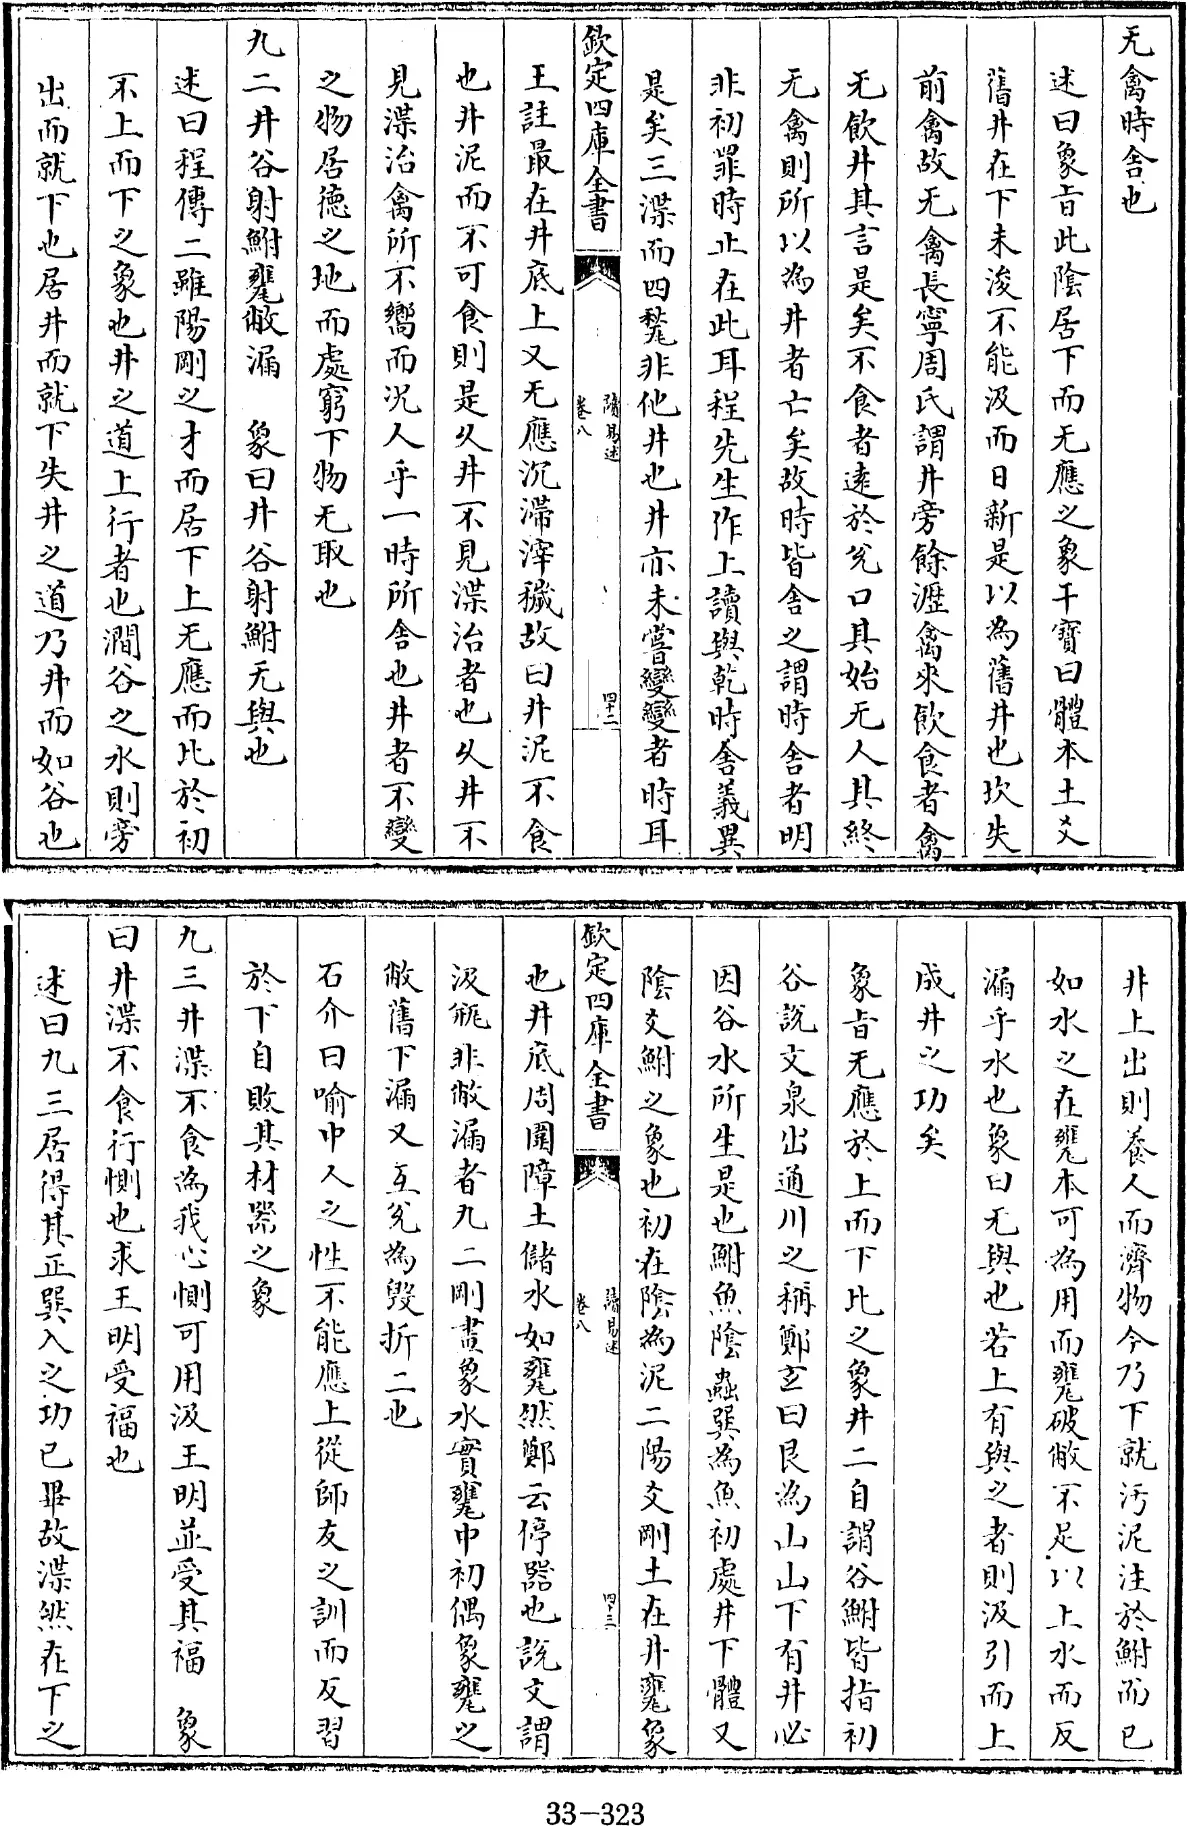 无禽時舍也
述曰象旨此陰居下而无應之象干寶曰體本土爻
舊井在下未浚不能汲而日新是以為舊井也坎失
前禽故无禽長寧周氏謂井旁餘瀝禽來飲食者禽
无飲井其言是矣不食者遠於兊口其始无人其終
无禽則所以為井者亡矣故時皆舍之謂時舍者明
非初罪時止在此耳程先生作上讀與乾時舍義異
是矣三渫而四甃非他井也井亦未嘗變變者時耳
欽定四庫全書
讀易述
卷八
四十二
王註最在井底上又无應沉滯滓穢故曰井泥不食
也井泥而不可食則是久井不見渫治者也久井不
見渫治禽所不嚮而况人乎一時所舍也井者不變
之物居德之地而處窮下物无取也
九二井谷射鮒甕敝漏 象曰井谷射鮒无與也
述曰程傳二雖陽剛之才而居下上无應而比於初
不上而下之象也井之道上行者也澗谷之水則旁
出而就下也居井而就下失井之道乃井而如谷也
井上出則養人而濟物今乃下就汚泥注於鮒而已
如水之在甕本可為用而甕破敝不足以上水而反
漏乎水也象曰无與也若上有與之者則汲引而上
成井之功矣
象旨无應於上而下比之象井二自謂谷鮒皆指初
谷説文泉出通川之稱鄭玄曰艮為山山下有井必
因谷水所生是也鮒魚陰蟲巽為魚初處井下體又
陰爻鮒之象也初在陰為泥二陽爻剛土在井甕象
欽定四庫全書
讀易述
卷八
四十三
也井底周圍障土儲水如甕然鄭云停器也説文謂
汲缾非敝漏者九二剛畫象水實甕中初偶象甕之
敝舊下漏又互兊為毀折二也
石介曰喻中人之性不能應上從師友之訓而反習
於下自敗其材器之象
九三井渫不食為我心惻可用汲王明並受其福 象
曰井渫不食行惻也求王明受福也
述曰九三居得其正巽入之功已畢故渫然在下之
33-323